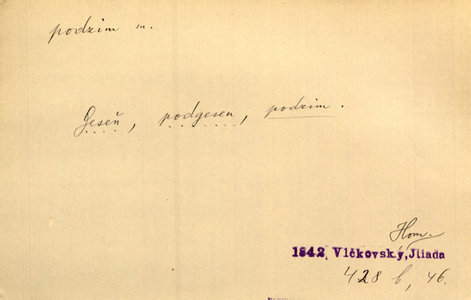 podzim m.
Geseň, podgesen, podzim.
Hom.
1842 Vlčkovský, Jliada
428 b, 46.